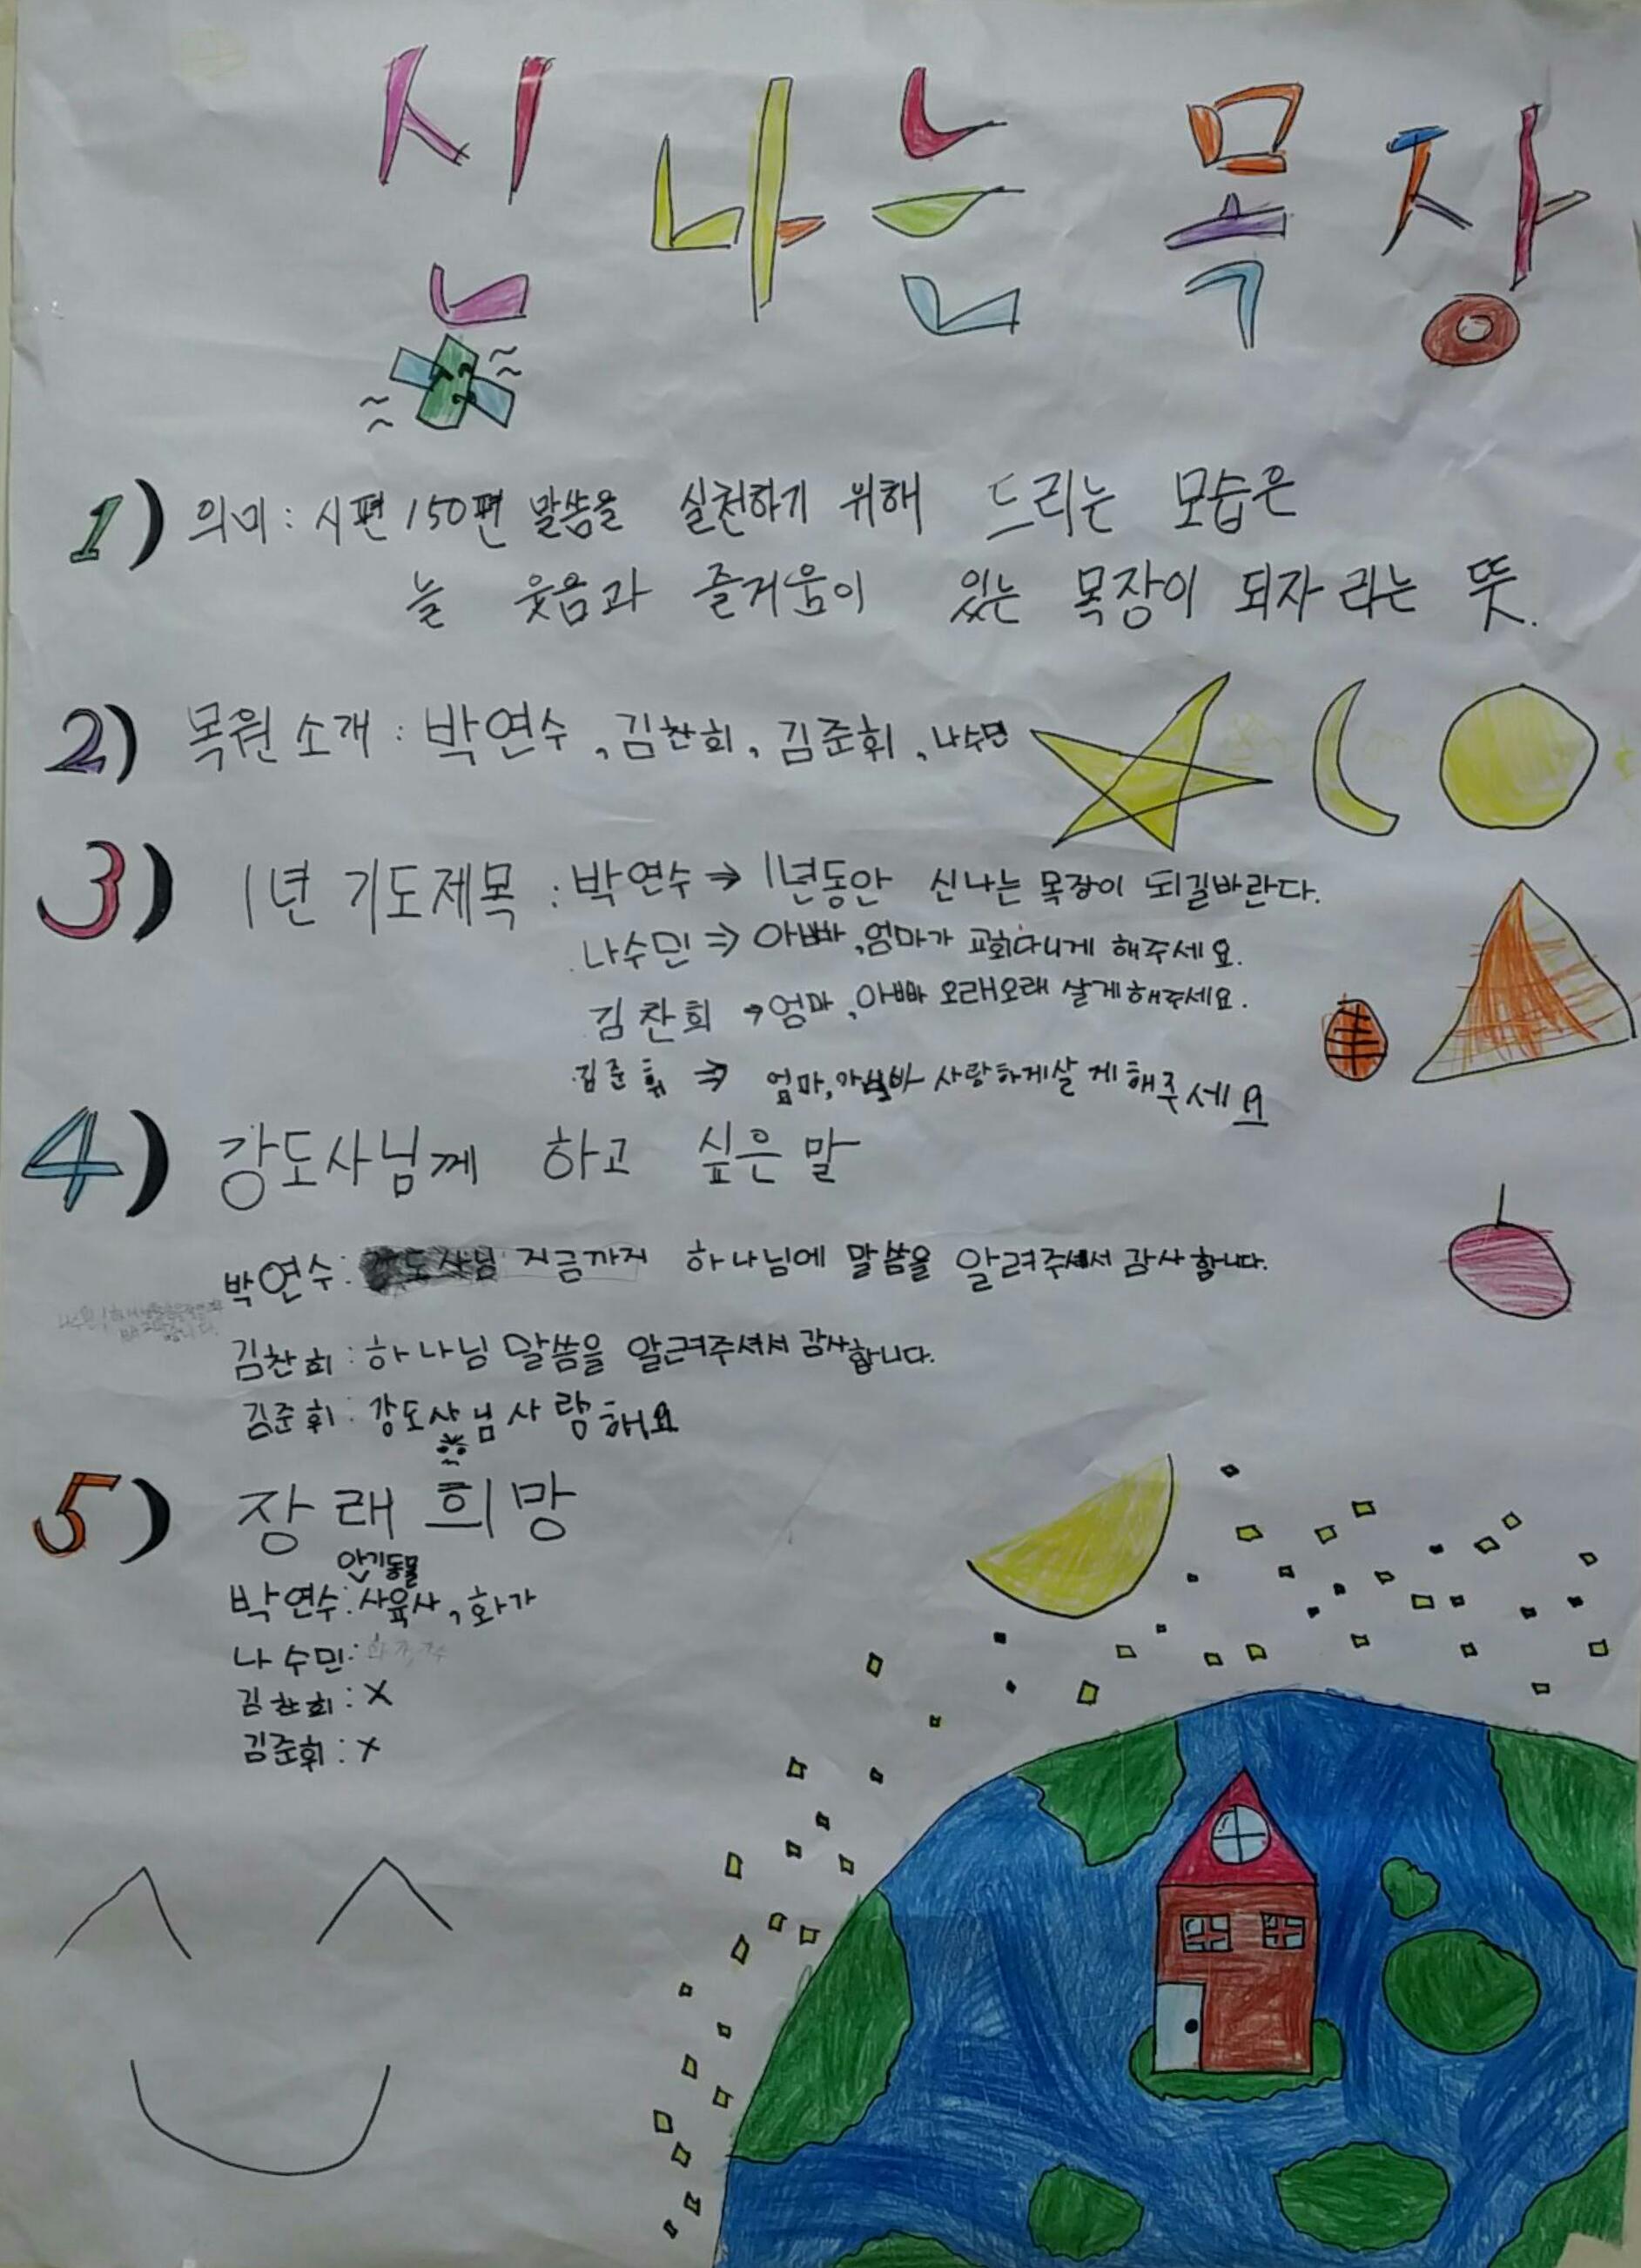 신나는 목장
1) 의미 : 시편 150편 말씀을 실천하기 위해 드리는 모습은
늘 웃음과 즐거움이 있는 목장이 되자 라는 뜻.
2) 목원 소개 : 박연수, 김찬희, 김준휘, 나수민
3) 1년 기도제목 : 박연수 ⇒ 1년동안 신나는 목장이 되길바란다.
나수민 ⇒ 아빠, 엄마가 교회다니게 해주세요.
김찬희 → 엄마, 아빠 오래오래 살게해주세요.
김준휘 ⇒ 엄마, 아빠 사랑하게살게해주세요
4) 강도사님께 하고 싶은 말
박연수 : 강도사님 지금까지 하나님에 말씀을 알려주셔서 감사합니다.
김찬희 : 하나님 말씀을 알려주셔서 감사합니다.
김준휘 : 강도사님 사랑해요
5) 장래희망
아기동물
박연수 : 사육사, 화가
나수민 :
김찬희 : X
김준휘 : X